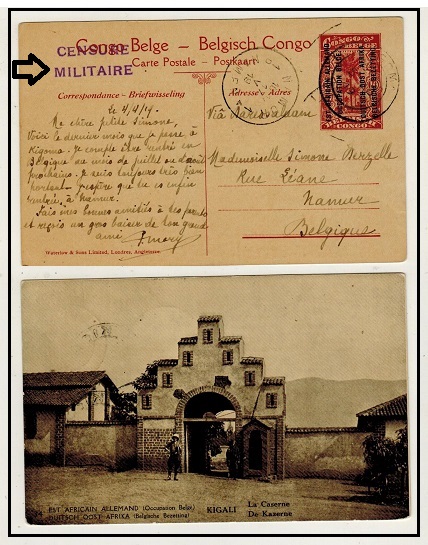 CENSURE
MILITAIRE
Congo Belge – Belgisch Congo
Carte Postale – Postkaart
Correspondance - Briefwisseling
Adresse - Adres
CONGO
Le 4/4/19.
Ma chère petite Simone,
Voici le dernier mois que je passe à
Kigoma. Je compte être rentré en
Belgique au mois de juillet ou août
prochain. Je suis toujours très bien
portant. J'espère que tu es enfin
rentrée à Namur.
Fais mes bonnes amitiés à tes parents
et reçois un gros baiser de ton grand
ami
Via Daressalaam
Mademoiselle Simone Berzelle
Rue Léane,
Namur
Belgique
Waterlow & Sons Limited, Londres, Angleterre.
EST AFRICAIN ALLEMAND (Occupation Belge)
DUITSCH OOST AFRIKA (Belgische Bezetting)
KIGALI
La Caserne
De Kazerne